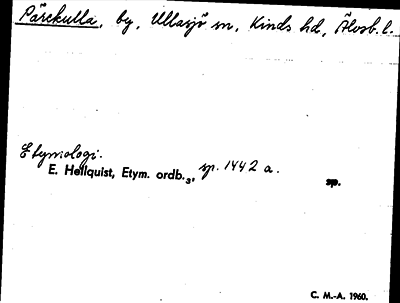 Pärekulla, by, Ullasjö sn, Kinds hd, Älvsb. l.
Etymologi.
E. Hellquist, Etym. ordb.₃, sp. 1442 a.
sp.
C. M.-A. 1960.